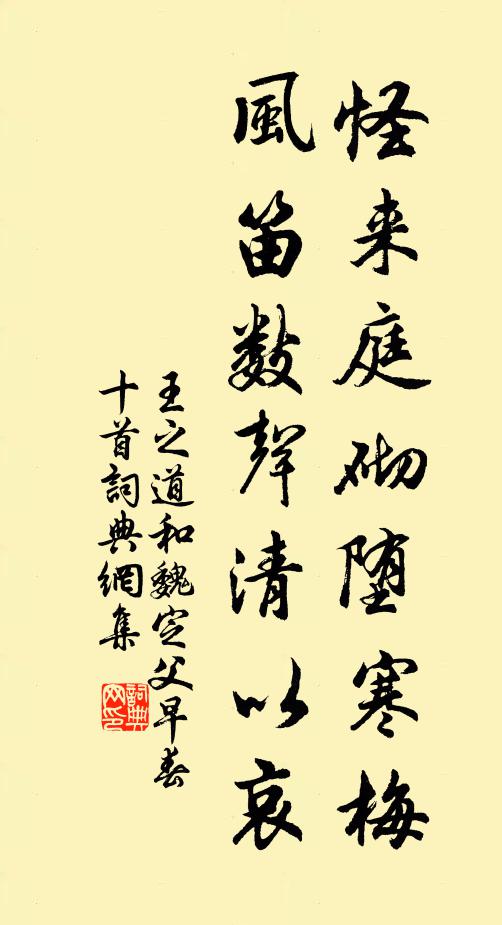 怪来庭砌堕寒梅
風笛数聲清以哀
王之道和魏定父早春
十首詞典網集
詞典网印